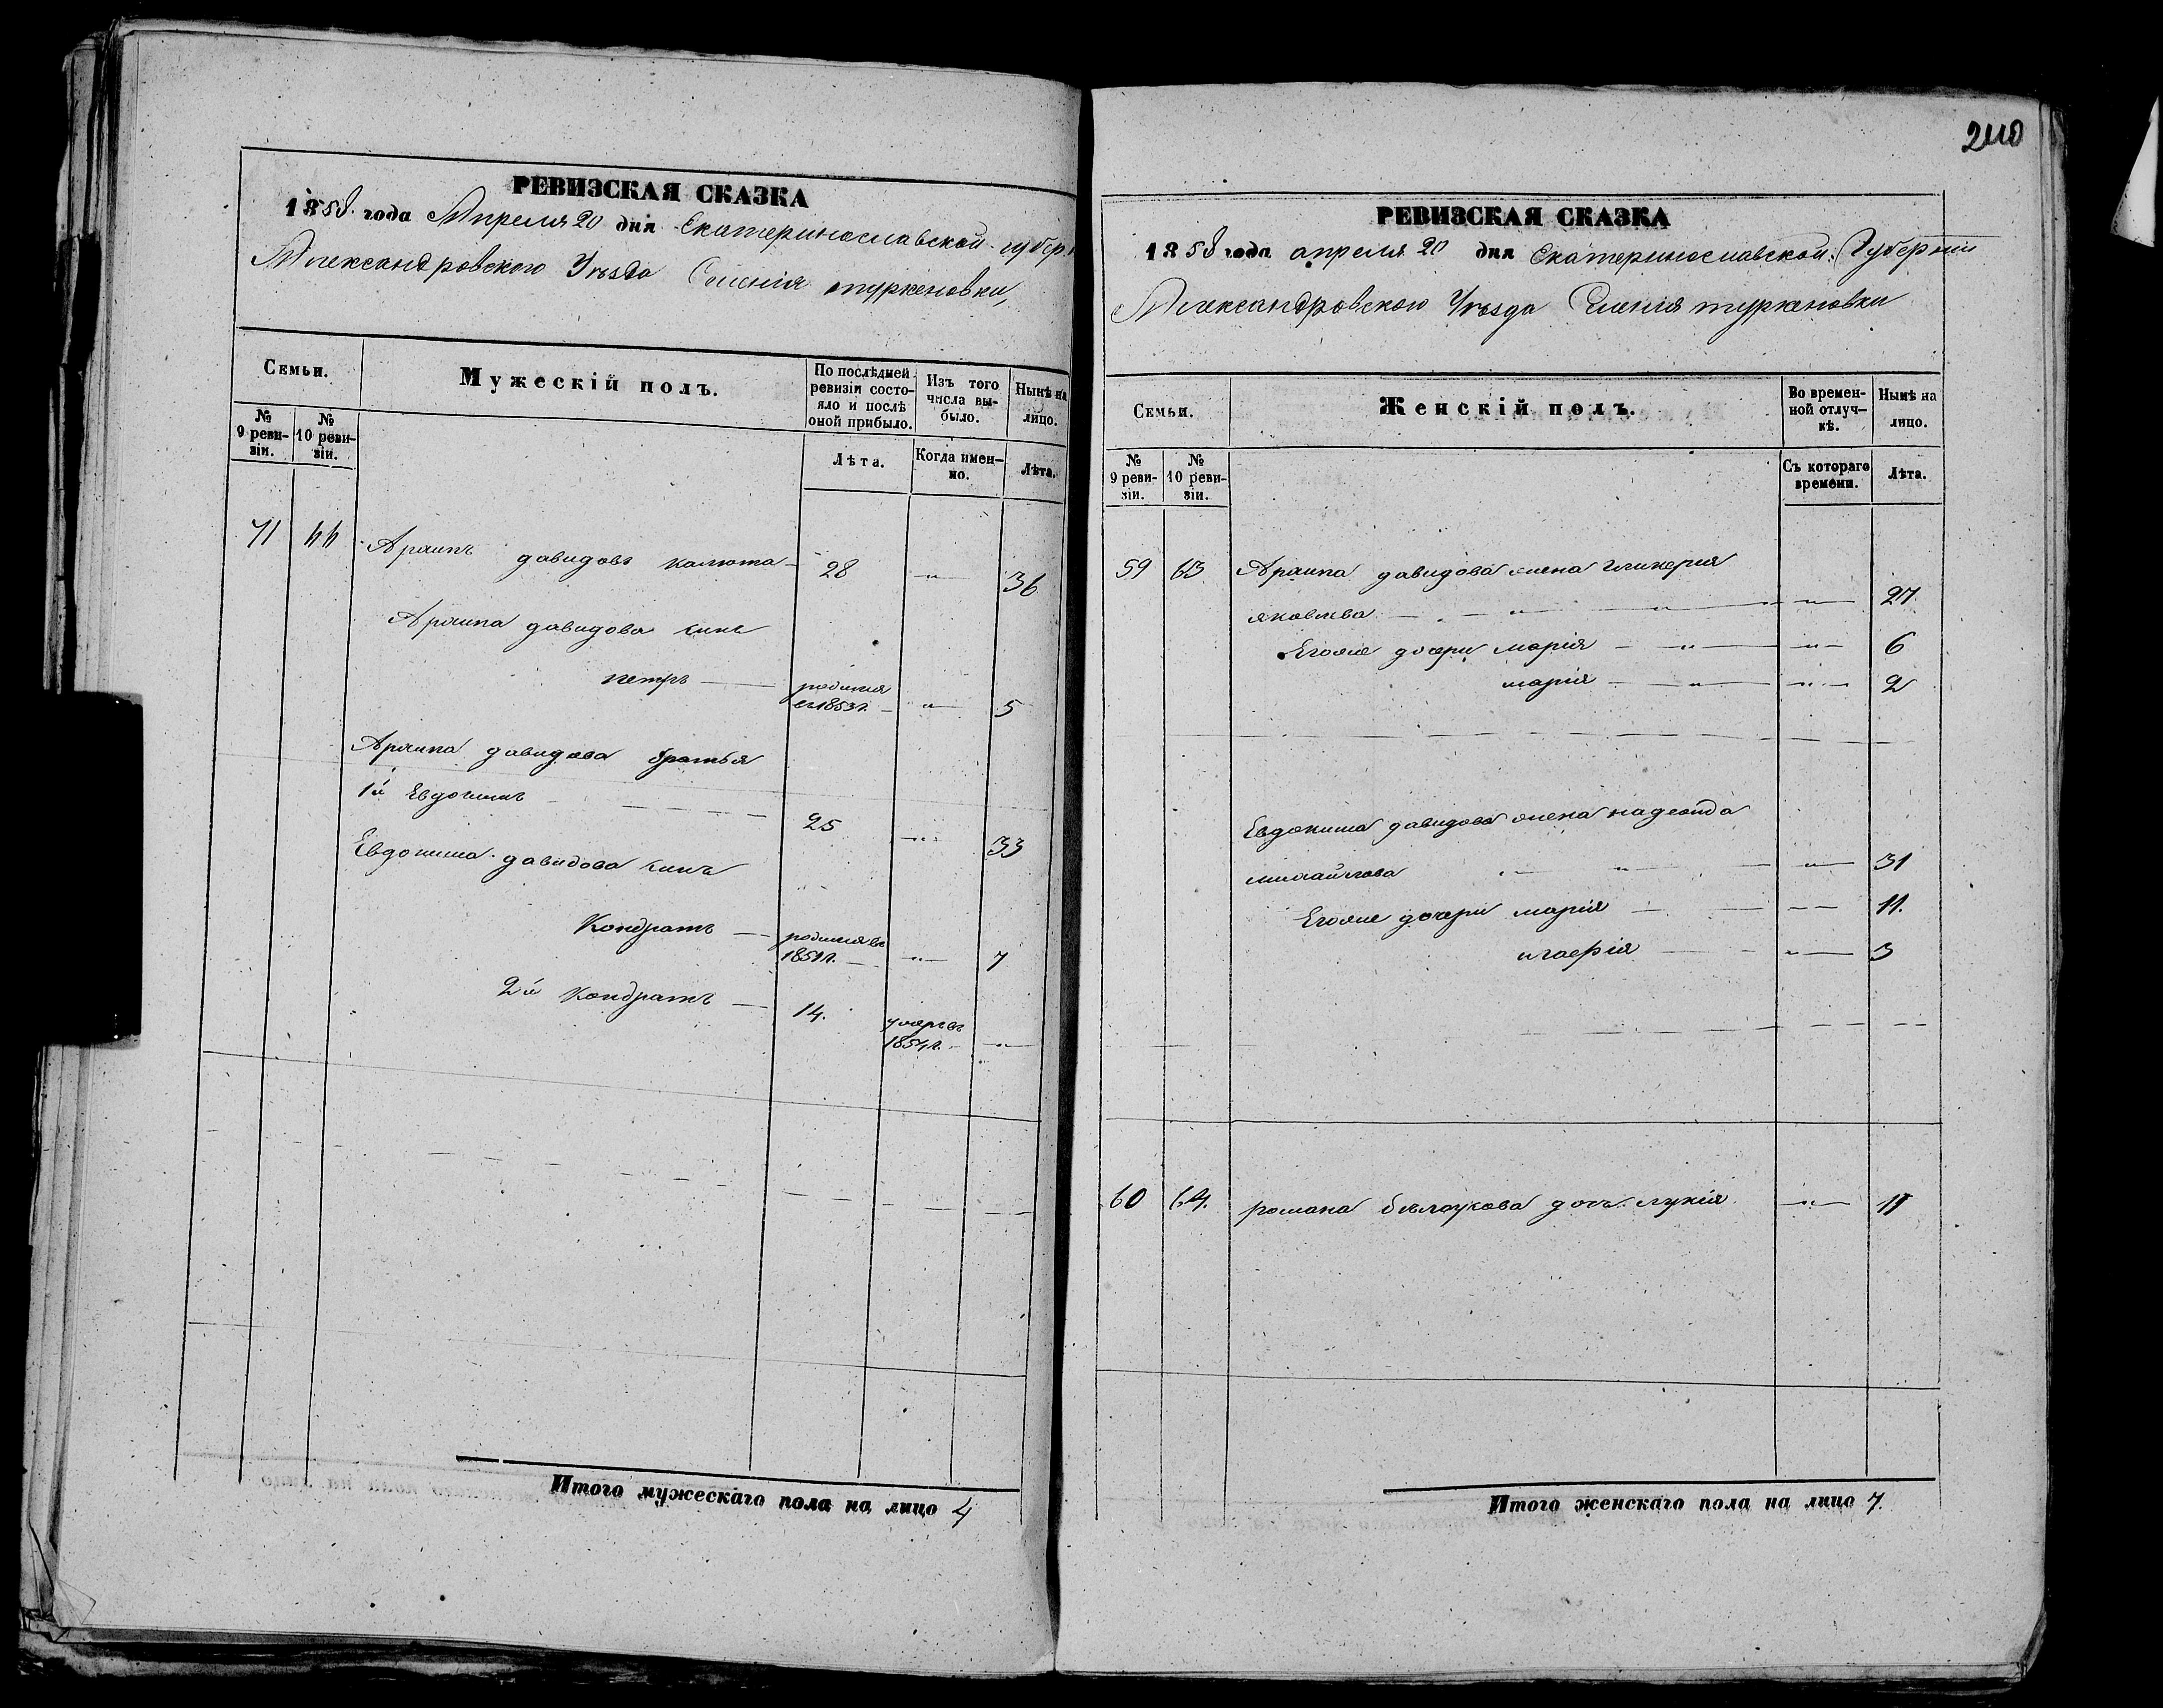 РЕВИЗСКАЯ СКАЗКА
1858 года Апреля 20 дня Екатеринославской губерн
Александровского Уезда Селенія туркеновки,
Семьи.
Мужескій полъ.
По послѣдней ревизіи состояло и послѣ оной прибыло.
Изъ того числа выбыло.
Нынѣ на лицо.
№ 9 ревизіи.
№ 10 ревизіи.
Лѣта.
Когда именно.
Лѣта.
71 44 Архипъ давидовъ калюта 28 — " — 36
Архипа давидова сынъ
петръ — родился въ 1853 г. — " — 5
Архипа давидова братья
1й Евдокимъ 25 — " — 33
Евдокима давидова сынъ
Кондратъ — родился въ 1851 г. — " — 7
2й Кондратъ — 14. умеръ въ 1854 г. — " —
Итого мужескаго пола на лицо 4
240
РЕВИЗСКАЯ СКАЗКА
1858 года апреля 20 дня Екатеринославской Губерніи
Александровского Уезда Селенія туркеновки
Семьи.
Женскій полъ.
Во временной отлучкѣ.
Нынѣ на лицо.
№ 9 ревизіи.
№ 10 ревизіи.
Съ котораго времени.
Лѣта.
59 63 Архипа давидова жена гликерия
яковлева — " — " — " — 27
Егоже дочери марія — " — " — 6
марія — " — " — 2
Евдокима давидова жена надежда
михайлова " — " — 31
Егоже дочери марія — — — 11.
— " — 3
60 64. романа дочь лукія — " — 11
Итого женскаго пола на лицо 7.